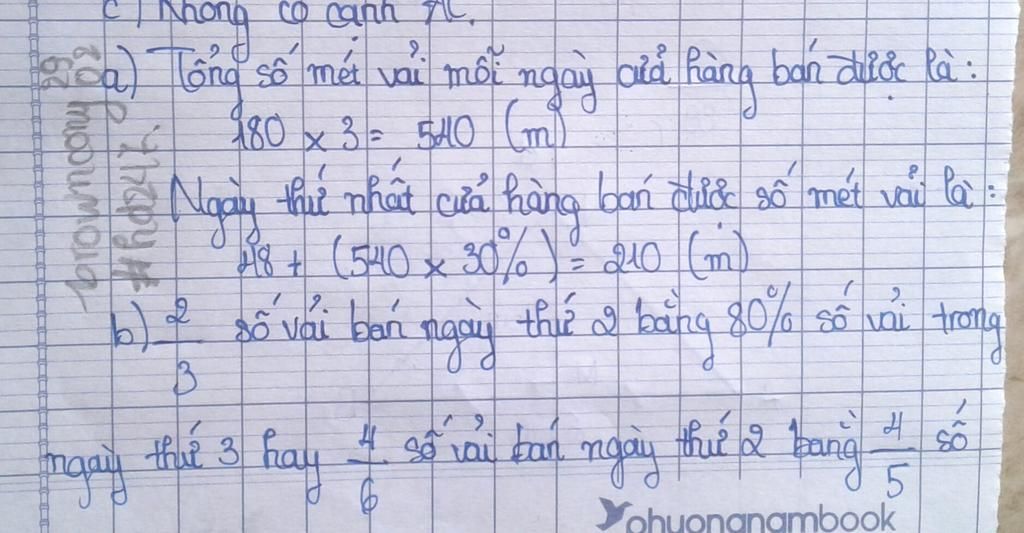 c) Không có cạnh AC.
a) Tổng số mét vải mỗi ngày cửa hàng bán được là:
180 x 3 = 540 (m)
Ngày thứ nhất cửa hàng bán được số mét vải là:
48 + (540 x 30%) = 210 (m)
b) 2/3 số vải bán ngày thứ 2 bằng 80% số vải trong
ngày thứ 3 hay 4/6 số vải bán ngày thứ 2 bằng 4/5 số
phuongnambook